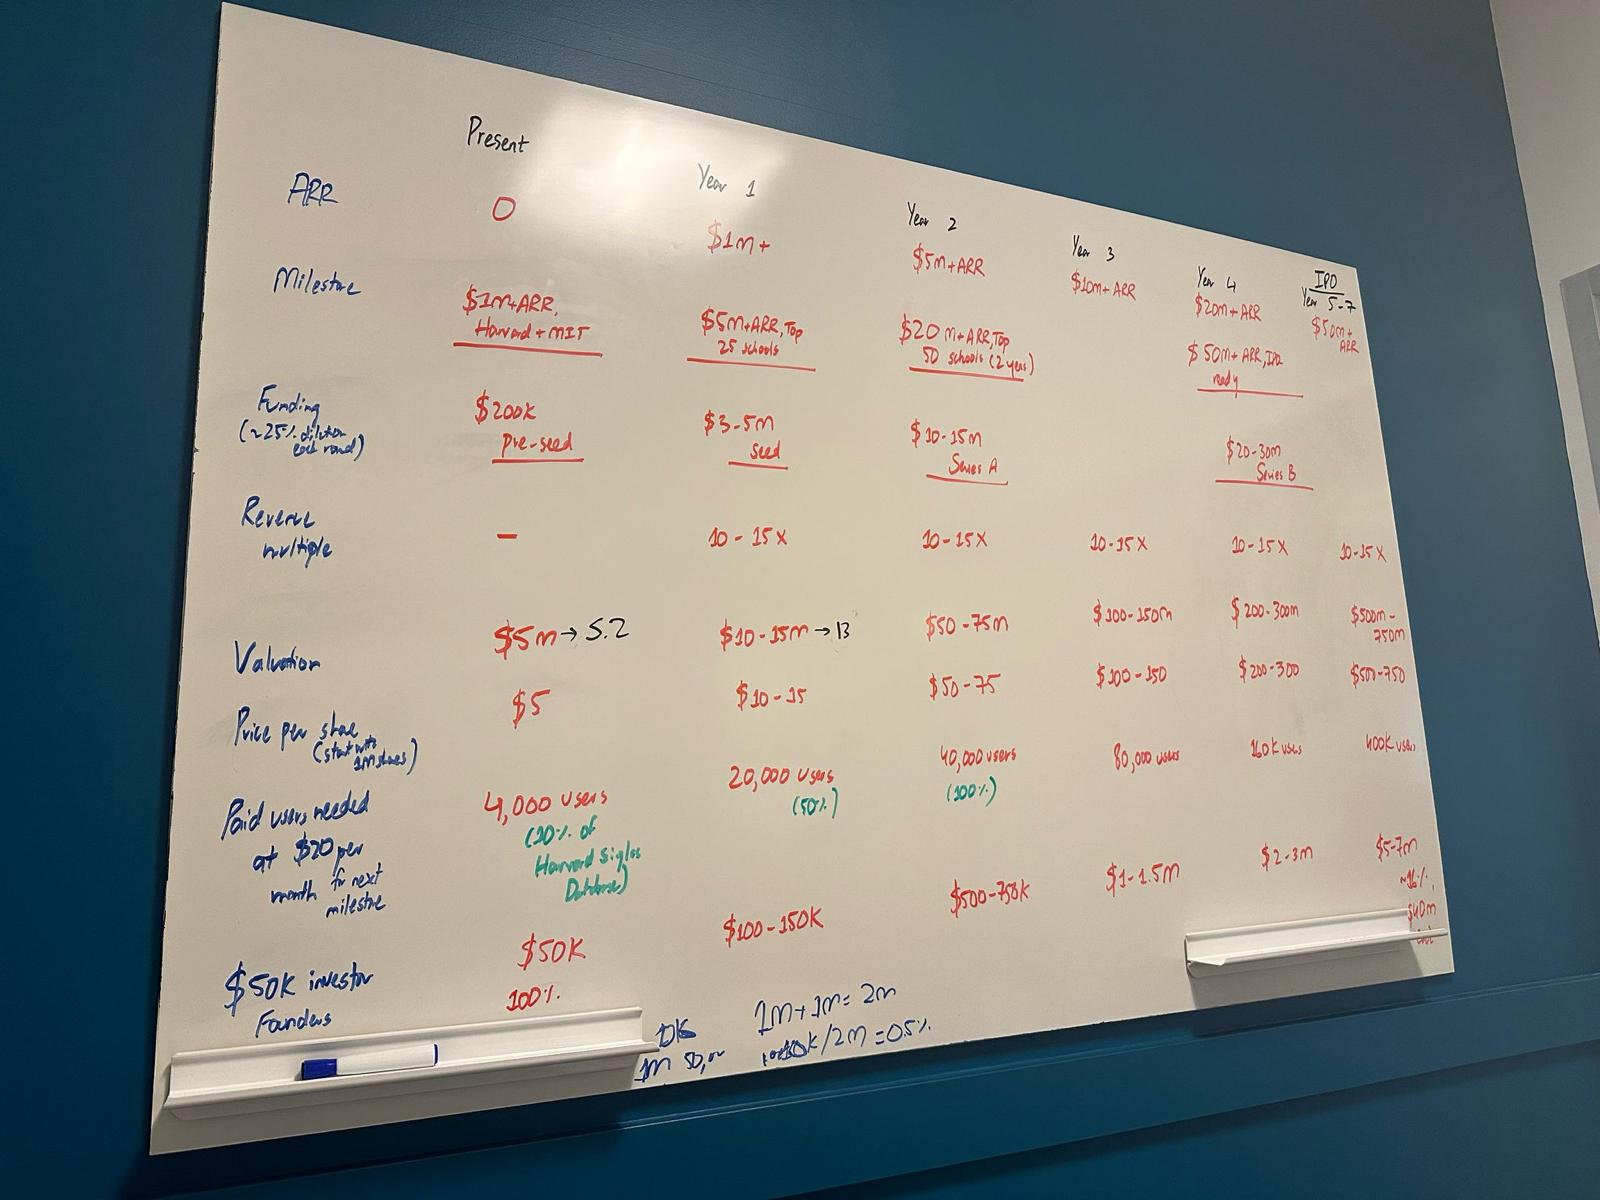 Present
Year 1
Year 2
Year 3
Year 4
IPO
Year 5-7
ARR
0
$1m+
$5m+ARR
$10m+ ARR
$20m+ ARR
$50m+
ARR
Milestone
$1m+ARR,
Harvard + MIT
$5m+ARR, Top
25 schools
$20m+ARR, Top
50 schools (2 years)
$50m+ ARR, IPO
ready
Funding
(~25% dilution
each round)
$200k
pre-seed
$3-5m
seed
$10-15m
Series A
$20-30m
Series B
Revenue
multiple
-
10-15x
10-15x
10-15x
10-15x
10-15x
Valuation
$5m → 5.2
$10-15m → 13
$50-75m
$100-150m
$200-300m
$500m-
750m
Price per share
(start with
1M shares)
$5
$10-15
$50-75
$100-150
$200-300
$500-750
Paid users needed
at $20 per
month for next
milestone
4,000 users
(10% of
Harvard Sigbs
Database)
20,000 users
(50%)
40,000 users
(100%)
80,000 users
160k users
400k users
$50k investor
$50k
$100-150k
$500-750k
$1-1.5m
$2-3m
$5-7m
~16%,
$40m
Founders
100%
1m+1m= 2m
/2m = 0.5%